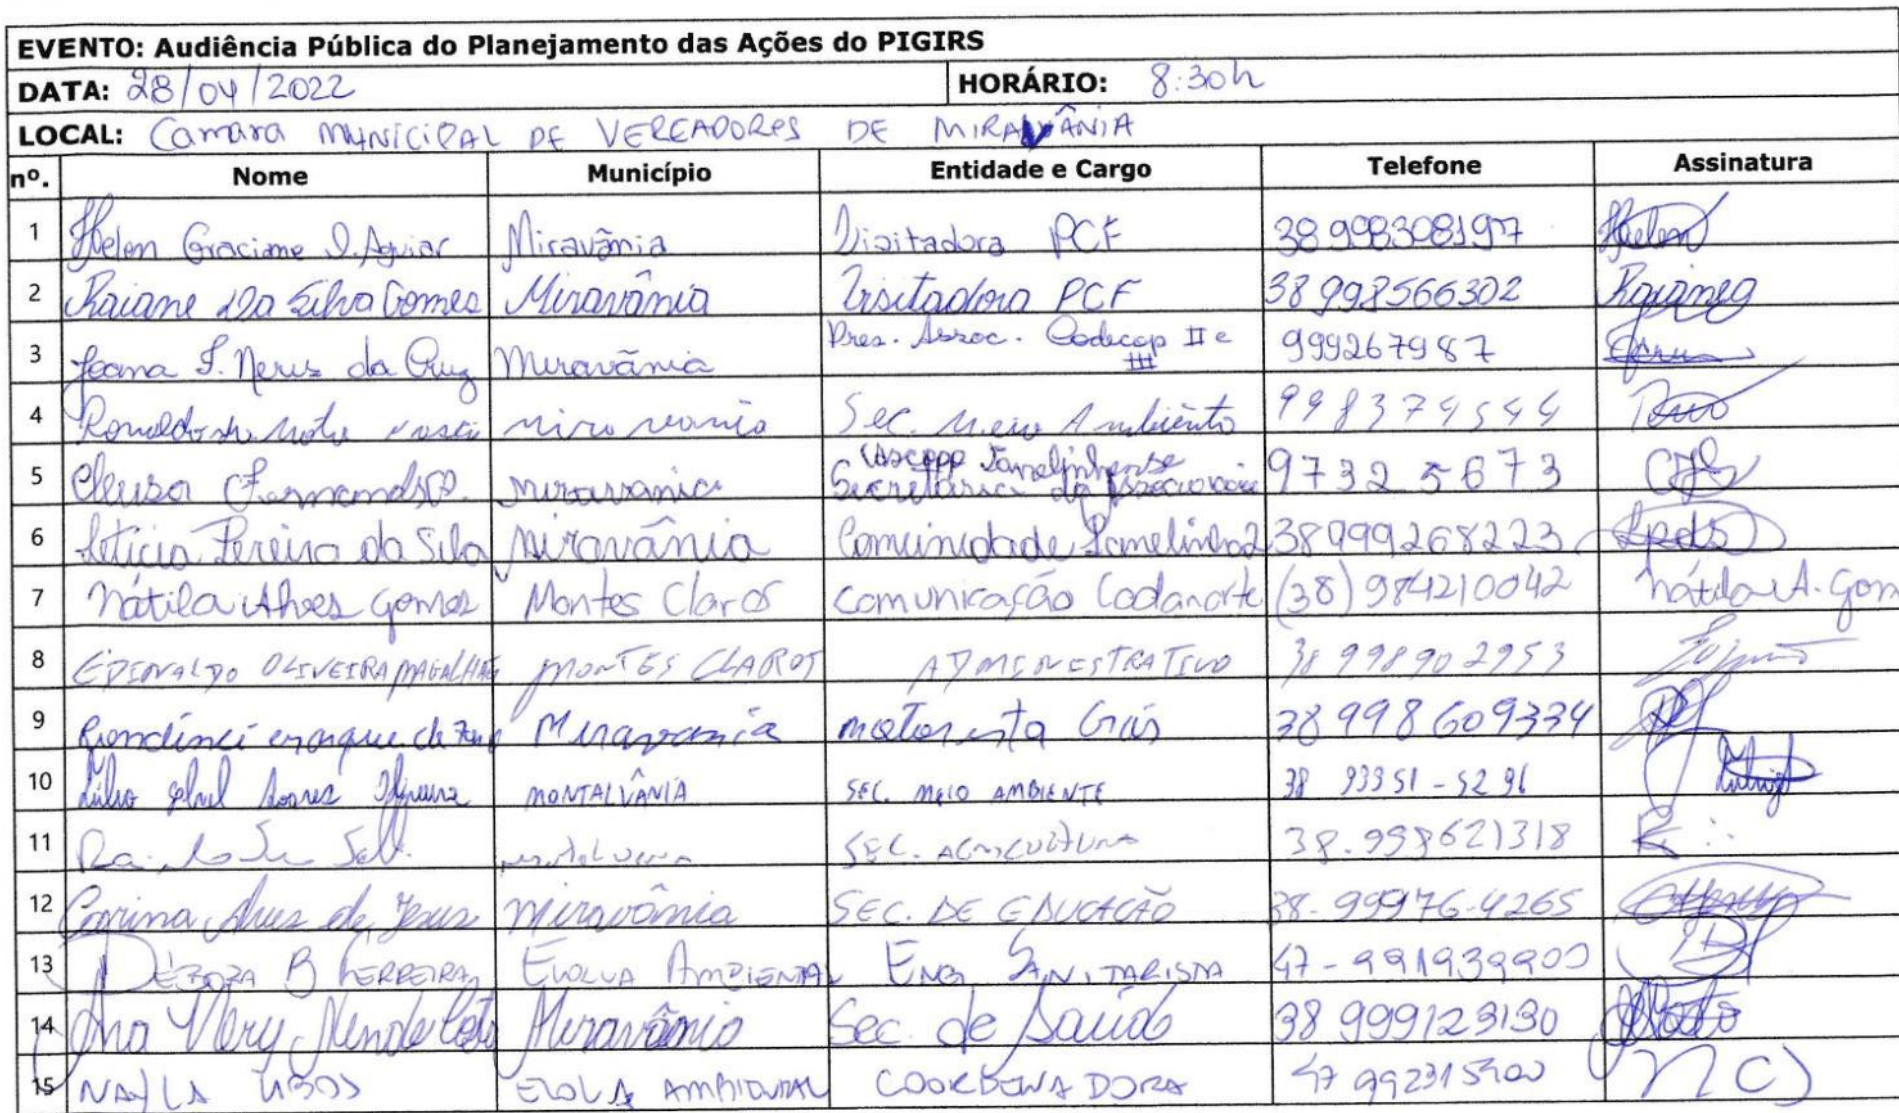 EVENTO: Audiência Pública do Planejamento das Ações do PIGIRS
DATA: 28/04/2022 HORÁRIO: 8:30h
LOCAL: Camara MUNICIPAL DE VEREADORES DE MIRAVÂNIA
nº. Nome Município Entidade e Cargo Telefone Assinatura
1 Helen Graciane D. Aguiar Miravânia Visitadora PCF 38 998308197 Helen
2 Raiane da Silva Gomes Miravânia Visitadora PCF 38 998566302 Raianeg
3 Joana F. Neris da Cruz Miravânia Pres. Assoc. Codecap II e III 999267987
4 Ronaldo da Mota Miravania Sec. Meio Ambiente 998374544
5 Cleusa Fernandes Miravania Secretária da Associação 9732 5673
6 Letícia Pereira da Silva Miravânia Comunidade 38 999268223 Lpds
7 Nátila Alves Gomes Montes Claros Comunicação Codanorte (38) 984210042 Nátila A. Gom
8 EDINALDO OLIVEIRA MAGALHÃES MONTES CLAROS ADMINISTRATIVO 38 998902953
9 Miravania motorista 38 998609334
10 Soares MONTALVÂNIA SEC. MEIO AMBIENTE 38 93351-5296
11 SEC. AGRICULTURA 38.998621318
12 Carina Alves de Jesus Miravânia SEC. DE EDUCAÇÃO 38-99976-4265
13 DÉBORA B FERREIRA EVOLUA AMBIENTAL ENG SANITARISTA 47-991939900
14 Ana Nery Mendes Miravânia Sec. de Saúde 38 999123130
15 NAYLA EVOLUA AMBIENTAL COORDENADORA 47 992315400